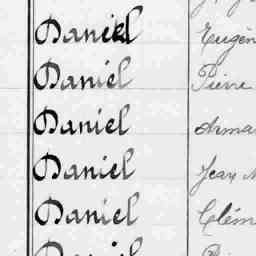 Daniel Eugèn
Daniel Pierre
Daniel Arma
Daniel Jean
Daniel Clém
Daniel